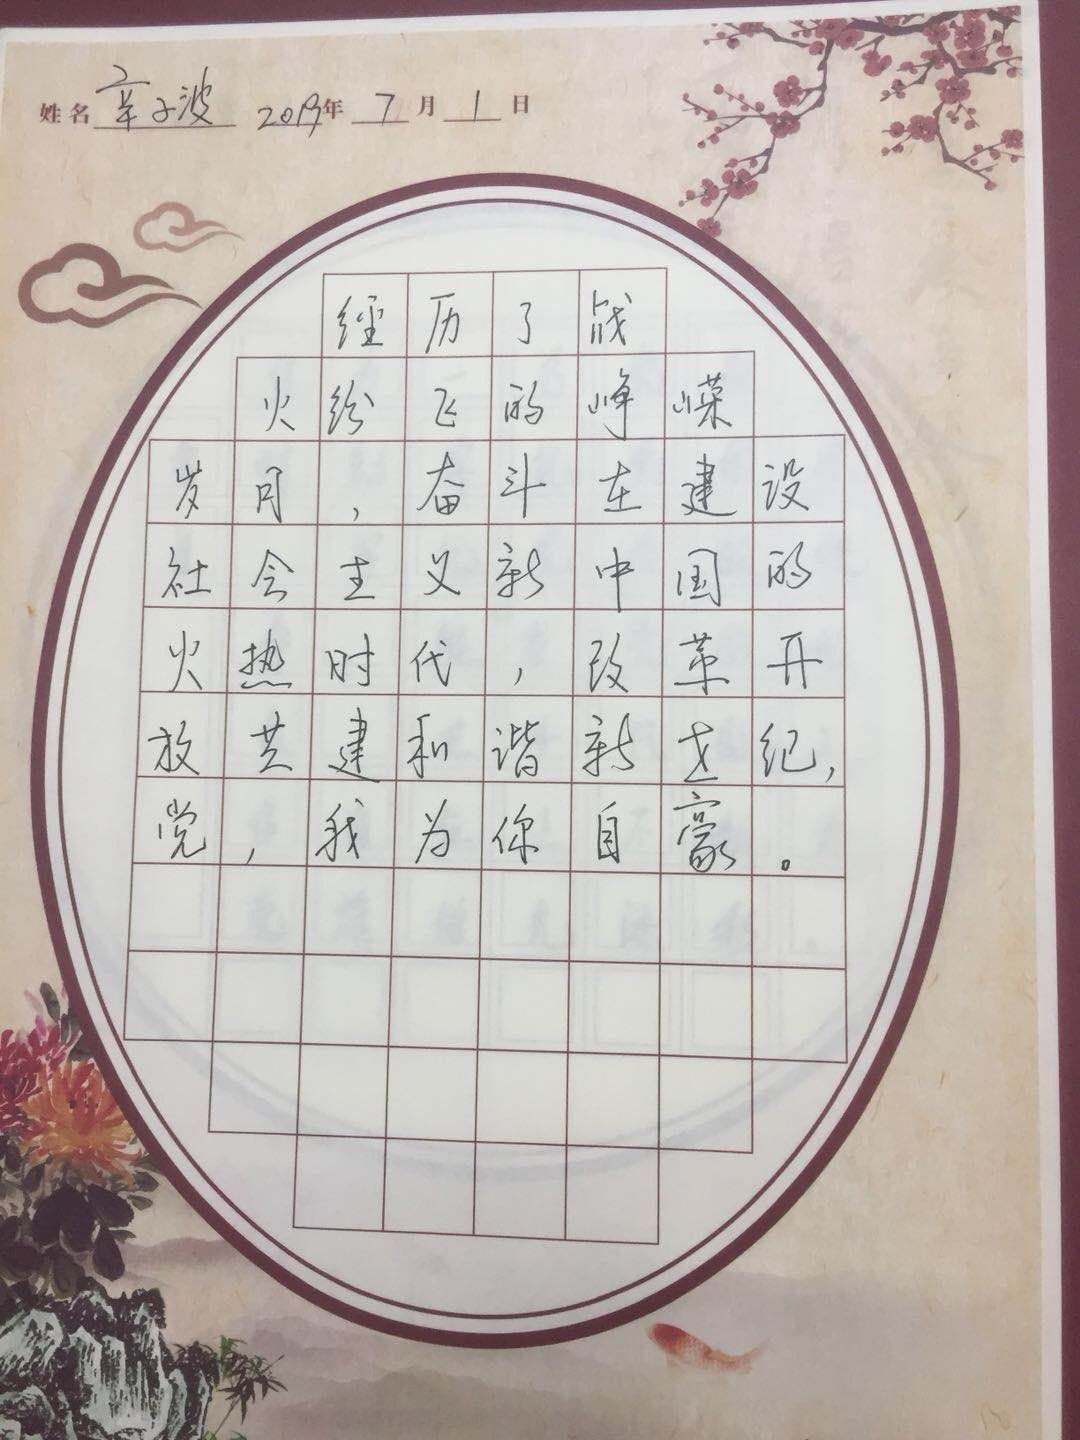 姓名 辛子波 2019年 7 月 1 日
经历了战
火纷飞的峥嵘
岁月，奋斗在建设
社会主义新中国的
火热时代，改革开
放共建和谐新世纪，
党，我为你自豪。